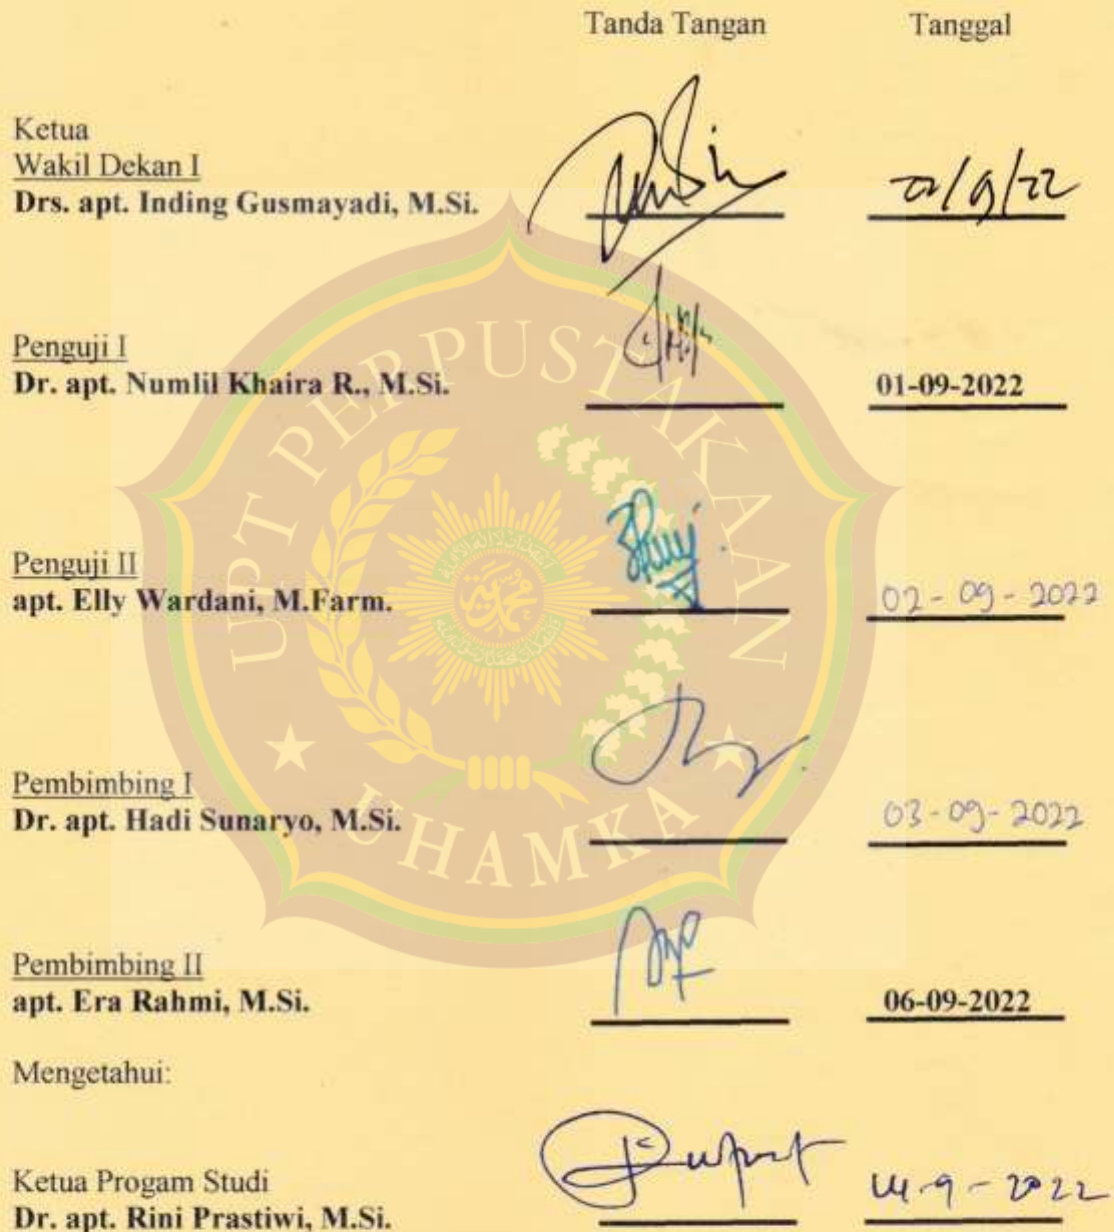 Tanda Tangan Tanggal
Ketua
Wakil Dekan I
Drs. apt. Inding Gusmayadi, M.Si. 22/9/22
Penguji I
Dr. apt. Numlil Khaira R., M.Si. 01-09-2022
Penguji II
apt. Elly Wardani, M.Farm. 02-09-2022
Pembimbing I
Dr. apt. Hadi Sunaryo, M.Si. 03-09-2022
Pembimbing II
apt. Era Rahmi, M.Si. 06-09-2022
Mengetahui:
Ketua Progam Studi
Dr. apt. Rini Prastiwi, M.Si. -9-2022
UPT PERPUSTAKAAN
UHAMKA